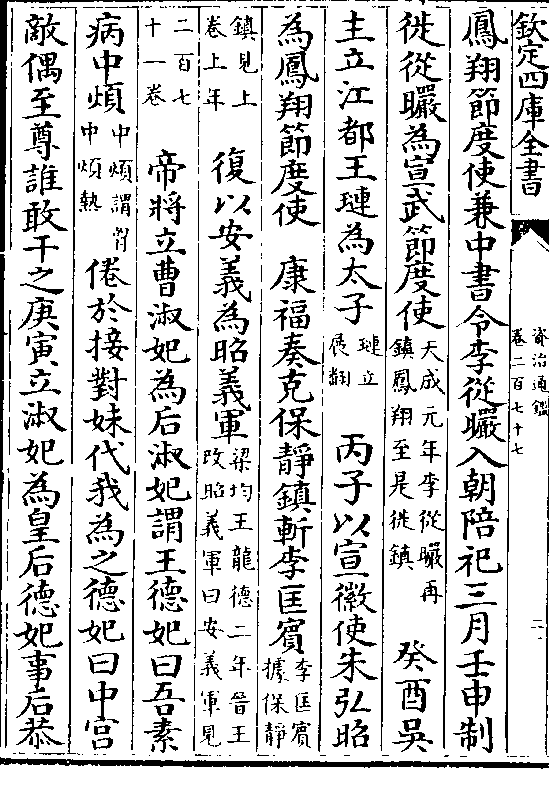 欽定四庫全書
資治通鑑
卷二百七十七
二
鳳翔節度使兼中書令李從曮入朝陪祀三月壬申制
徙從曮為宣武節度使天成元年李從曮再鎮鳳翔至是徙鎮 癸酉吳
主立江都王璉為太子璉立展翻 丙子以宣徽使朱弘昭
為鳳翔節度使 康福奏克保靜鎮斬李匡賓李匡賓據保靜
鎮見上卷上年 復以安義為昭義軍梁均王龍德二年晉王改昭義軍曰安義軍見
二百七十一卷 帝將立曹淑妃為后淑妃謂王德妃曰吾素
病中煩中煩謂胷中煩熱倦於接對妹代我為之德妃曰中宮
敵偶至尊誰敢干之庚寅立淑妃為皇后德妃事后恭